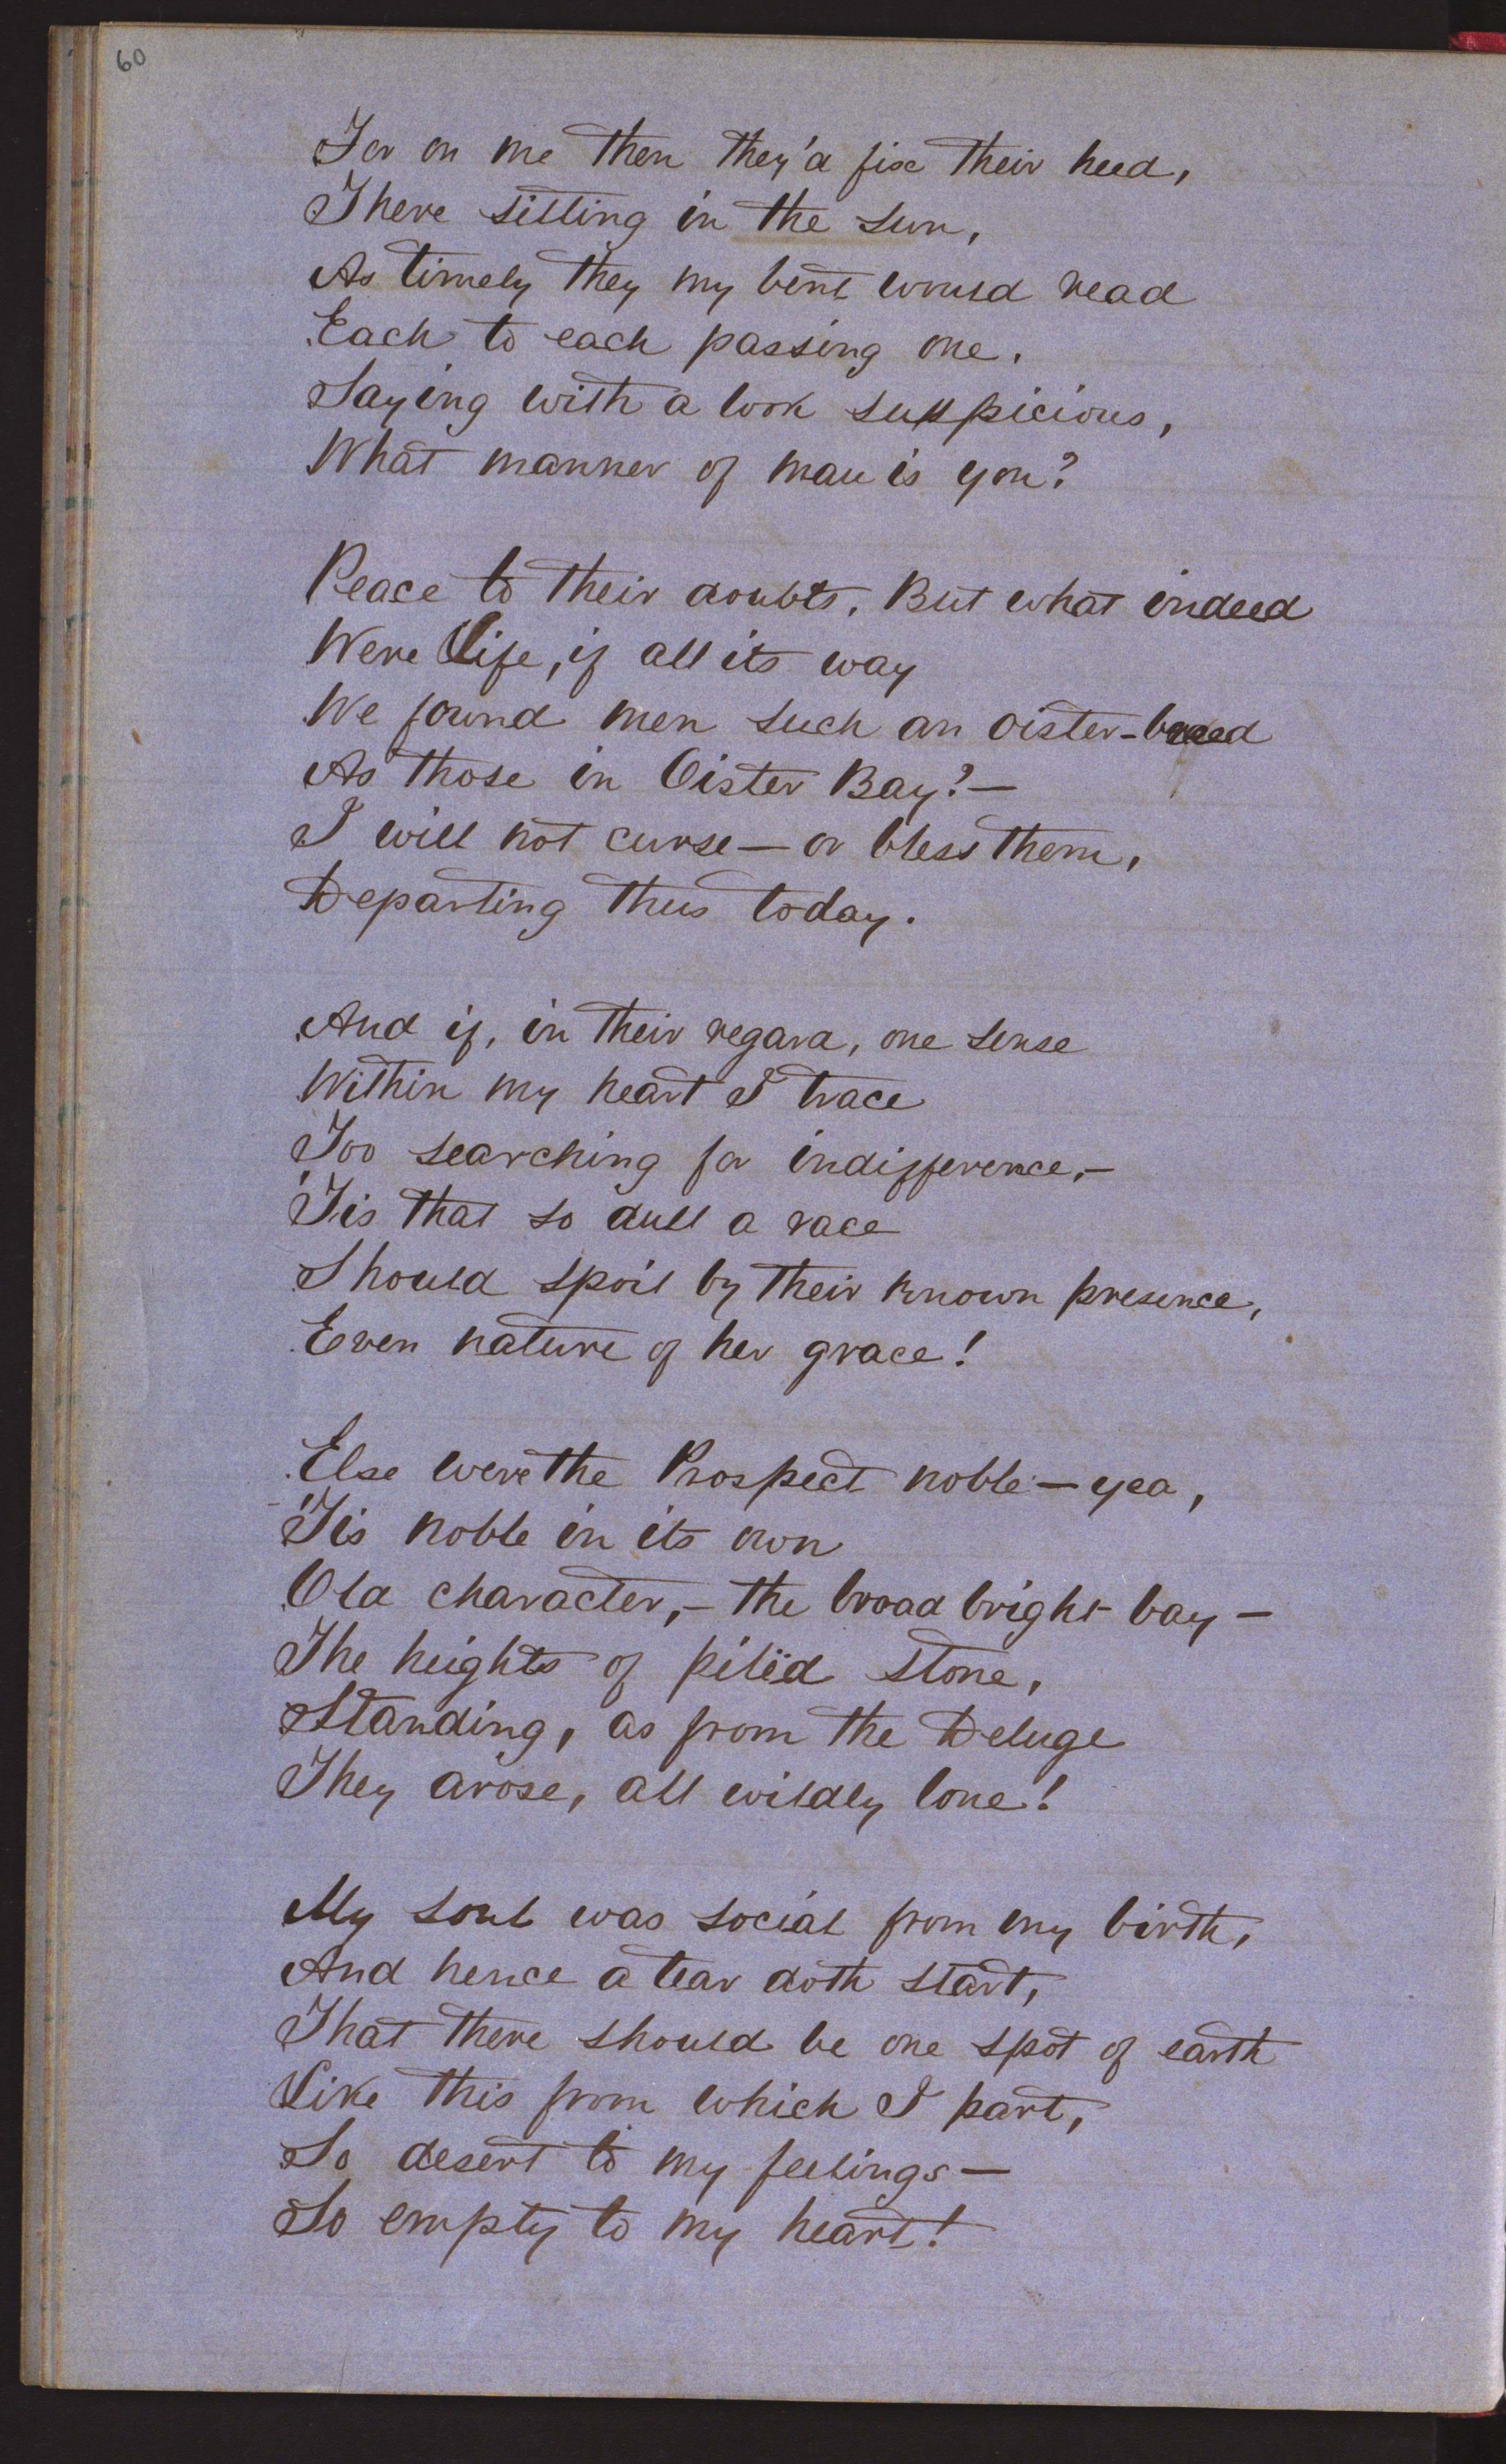 60
For on me then they'd fix their heed,
There sitting in the sun,
As timely they my bent would read
Each to each passing one,
Saying with a look suspicious,
What manner of man is yon?
Peace to their doubts. But what indeed
Were Life, if all its way
We found men such an oister-breed
As those in Oister Bay?—
I will not curse—or bless them,
Departing thus today.
And if, in their regard, one sense
Within my heart I trace
Too searching for indifference,—
'Tis that so dull a race
Should spoil by their known presence,
Even nature of her grace!
Else were the Prospect noble—yea,
'Tis noble in its own
Old character,—the broad bright bay—
The heights of pilëd stone,
Standing, as from the Deluge
They arose, all wildly lone!
My soul was social from my birth,
And hence a tear doth start,
That there should be one spot of earth
Like this from which I part,
So desert to my feelings—
So empty to my heart!